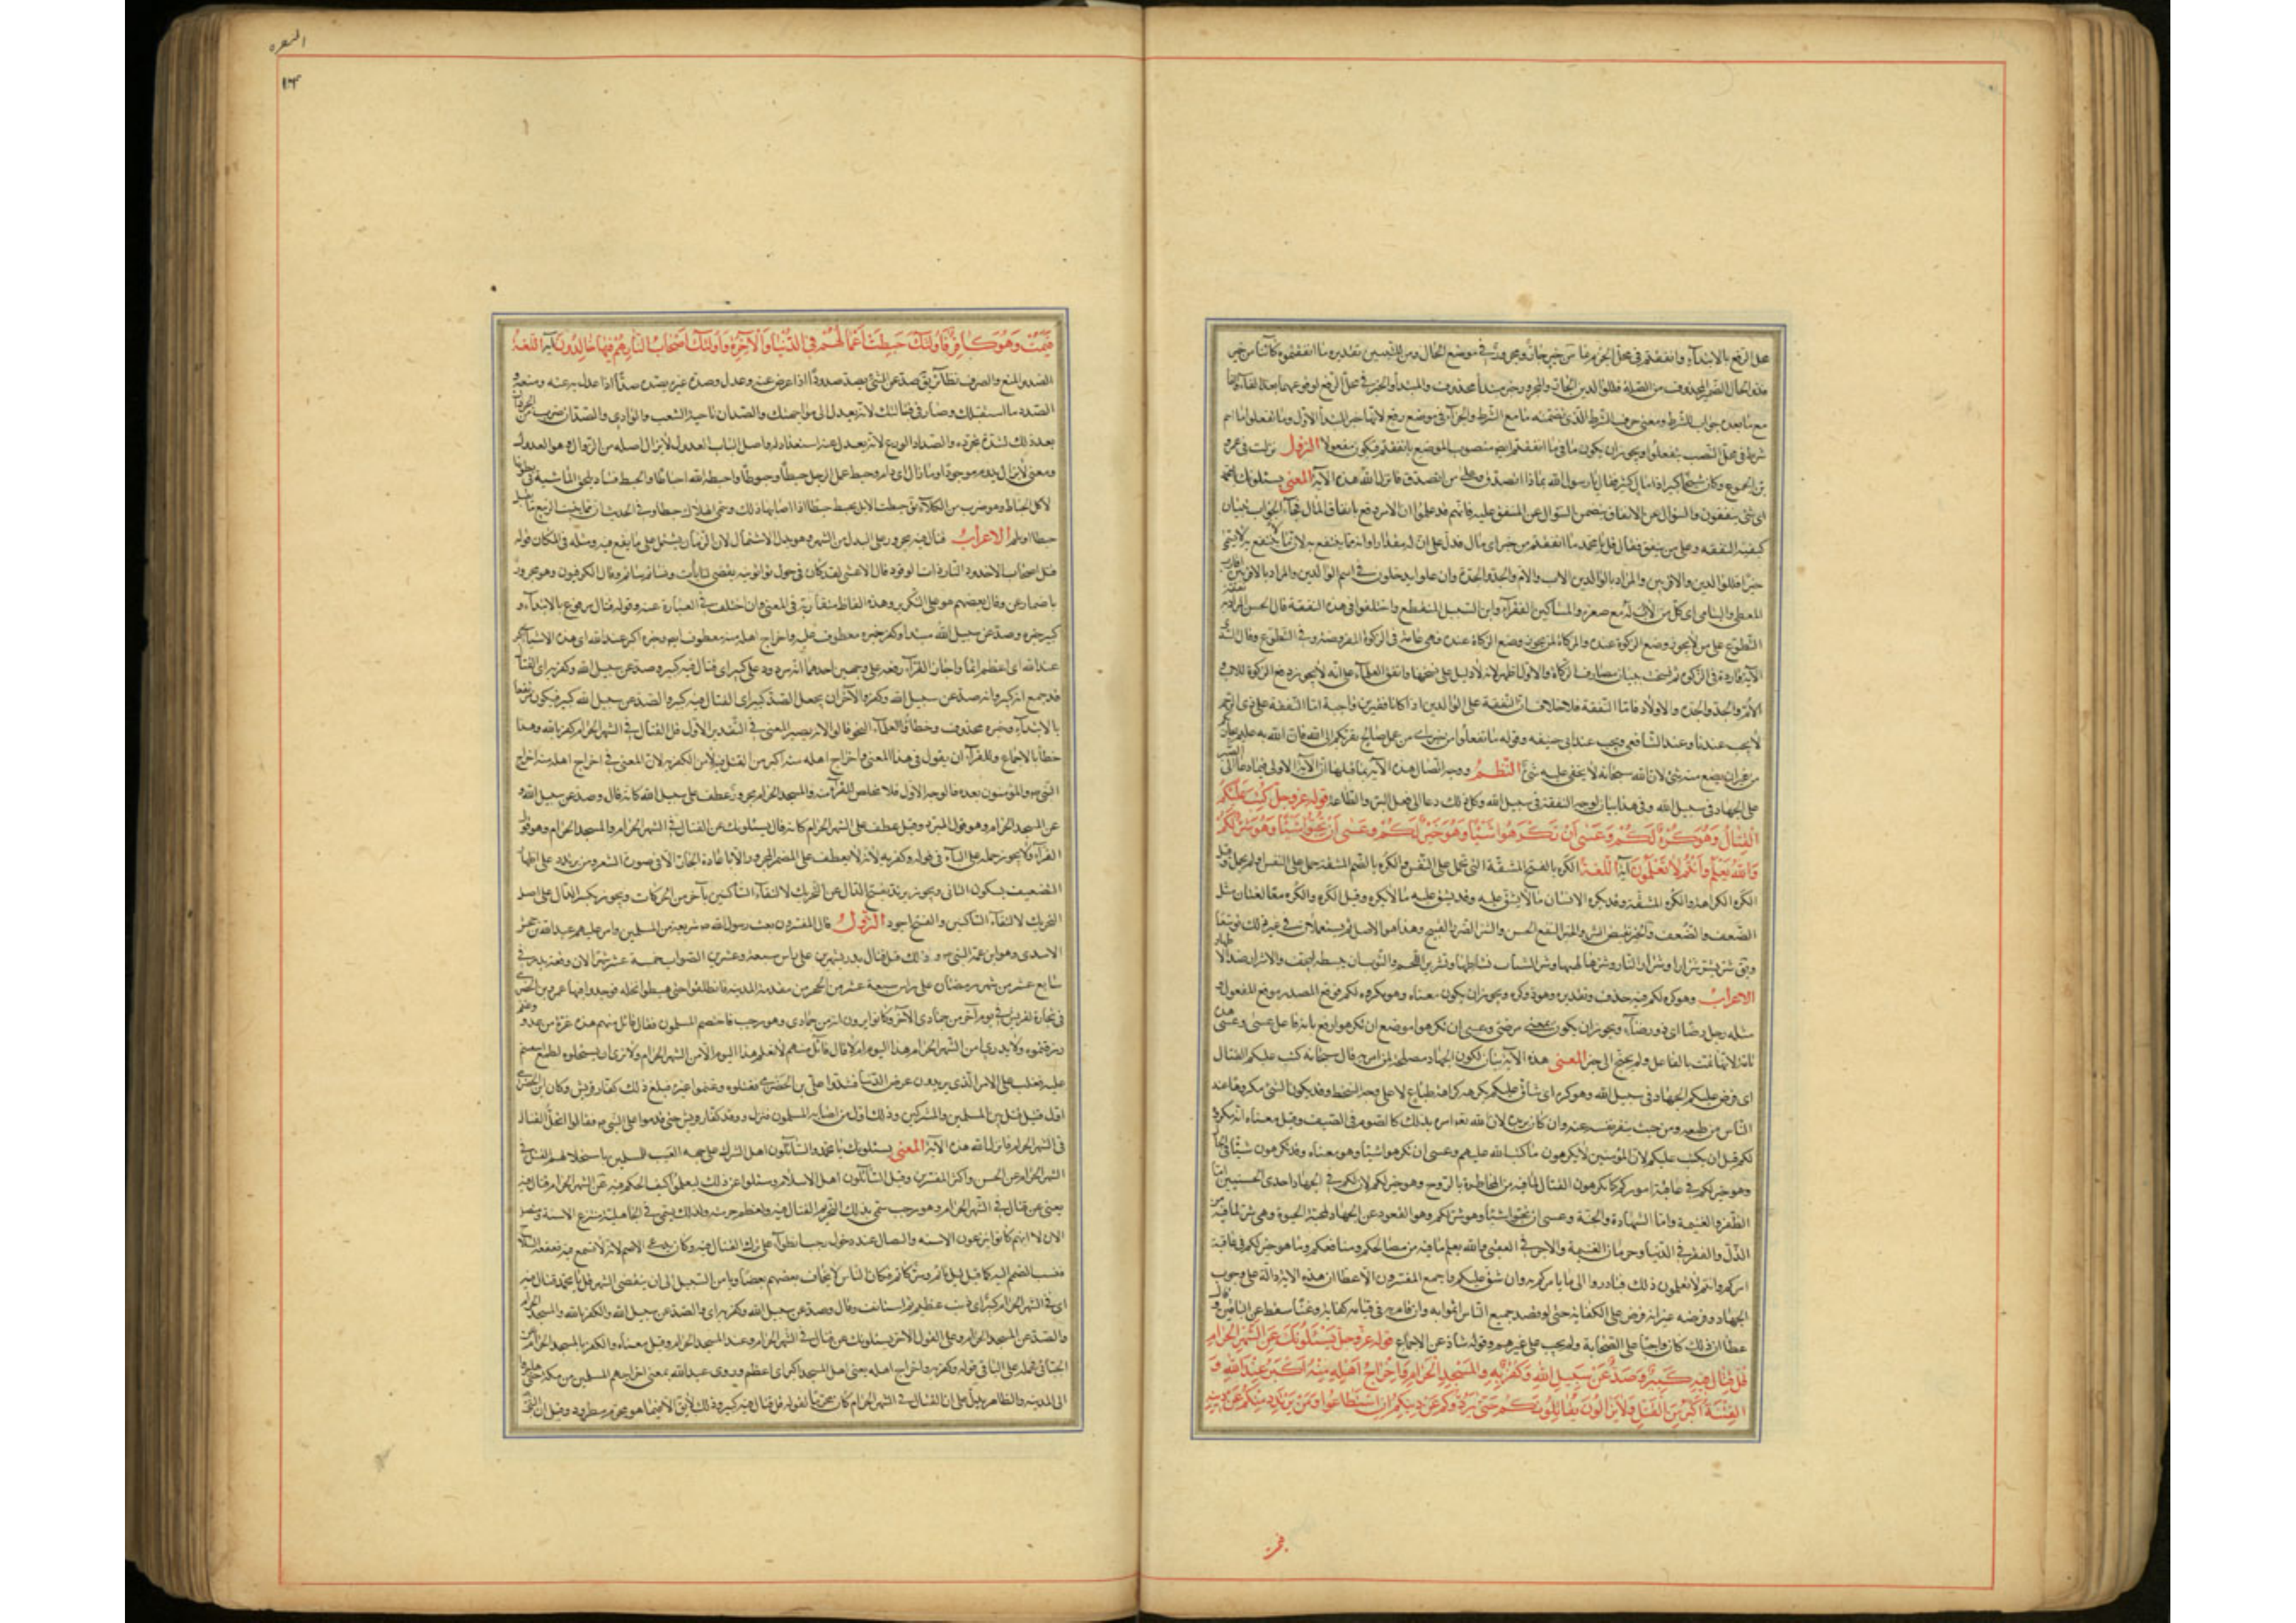 محل الرفع بالابتداء وانفقتم في محل الجزم بما من خير جار ومجرور في موضع الحال ومن للتبيين تقديره ما انفقتموه كائنا من خير
فذو الحال الضمير المحذوف من الصلة فللوالدين الجار والمجرور خبر مبتدأ محذوف والمبتدأ والخبر في محل الرفع لوقوعهما بعد الفاء
مع ما بعده جواب للشرط ومعنى حرف الشرط الذي تضمنه ما مع الشرط والجزاء في موضع رفع لانها خبر المبتدأ الاول وما تفعلوا ما اسم
شرط في محل النصب بتفعلوا ويجوز ان يكون ما في ما انفقتم ايضا منصوب الموضع بانفقتم فيكون مفعولا النزول نزلت في عمرو
بن الجموح وكان شيخا كبيرا ذا مال كثير فقال يا رسول الله بماذا اتصدق وعلى من اتصدق فانزل الله هذه الآية المعنى يسئلونك يا محمد
اي شئ ينفقون والسؤال عن الانفاق يتضمن السؤال عن المنفق عليه فانهم قد علموا ان الامر وقع بانفاق المال فجاء الجواب ببيان
كيفية النفقة وعلى من ينفق فقال قل يا محمد ما انفقتم من خير اي مال فدل على ان له مقدارا وانه مما ينتفع به لان ما لا ينتفع به لا يسمى
خيرا فللوالدين والاقربين والمراد بالوالدين الاب والام والجد والجدة وان علوا يدخلون في اسم الوالدين والمراد بالاقربين اقارب
المعطي واليتامى اي كل من لا اب له مع صغره والمساكين الفقراء وابن السبيل المنقطع واختلفوا في هذه النفقة قال الحسن المراد به
التطوع على من لا يجوز وضع الزكوة عنده والزكاة لمن يجوز وضع الزكاة عنده فهي عامة في الزكوة المفروضة وفي التطوع وقال السدي
الآية واردة في الزكوة ثم نسخت ببيان مصارف الزكاة والاول اظهر لانه لا دليل على نسخها واتفق العلماء على انه لا يجوز دفع الزكوة للاب
والام والجد والجدة والاولاد فاما النفقة فلا خلاف ان النفقة على الوالدين اذا كانا فقيرين واجبة اما النفقة على ذي الرحم
لا يجب عندنا وعند الشافعي ويجب عند ابي حنيفة وقوله ما تفعلوا من خير اي من عمل صالح يقربكم الى الله فان الله به عليم
من غير ان يضيع منه شئ لان الله سبحانه لا يخفى عليه شئ النظم ووجه اتصال هذه الآية بما قبلها ان الآية الاولى فيها دعاء الى
على الجهاد في سبيل الله وفي هذا بيان لوجه النفقة في سبيل الله وكل ذلك دعا الى فعل البر والطاعة قوله عز وجل كتب عليكم
القتال وهو كره لكم وعسى ان تكرهوا شيئا وهو خير لكم وعسى ان تحبوا شيئا وهو شر لكم
والله يعلم وانتم لا تعلمون آية اللغة الكره بالفتح المشقة التي تحمل على النفس والكره بالضم المشقة حمل على النفس او لم يحمل وقيل
الكره الكراهة والكره المشقة وقد يكره الانسان ما لا يشق عليه وقد يشق عليه ما لا يكره وقيل الكره والكره معا لغتان مثل
الضعف والضعف والخير نقيض الشر والخير النفع الحسن والشر الضرر القبيح وهذا هو الاصل ثم يستعملان في غير ذلك توسعا
الاعراب وهو كره لكم فيه حذف وتقديره وهو ذو كره ويجوز ان يكون معناه وهو مكروه لكم فوقع المصدر موقع المفعول
مثله رجل رضا اي ذو رضا ويجوز ان يكون بمعنى مرضي وعسى ان تكرهوا موضع ان تكرهوا رفع بانه فاعل عسى وعسى هذه
تامة لانها تمت بالفاعل ولم يحتج الى خبر المعنى هذه الآية بيان لكون الجهاد مصلحة لمن امر به قال سبحانه كتب عليكم القتال
اي فرض عليكم الجهاد في سبيل الله وهو كره اي شاق عليكم تكرهونه كراهة طباع لا على وجه السخط وقد يكون الشئ مكروها عند
الناس من طبعه ومن حيث تنفر نفسه عنه وان كان يريده لان الله تعالى امر بذلك كالصوم في الصيف وقيل معناه انه يكره
لكم قبل ان يكتب عليكم لان المؤمنين لا يكرهون ما كتب الله عليهم وعسى ان تكرهوا شيئا وهو معناه وقد تكرهون شيئا
وهو خير لكم في عاقبة اموركم كما تكرهون القتال لما فيه من المخاطرة بالروح وهو خير لكم لان لكم في الجهاد احدى الحسنيين اما
الظفر والغنيمة واما الشهادة والجنة وعسى ان تحبوا شيئا وهو شر لكم وهو القعود عن الجهاد لمحبة الحيوة وهو شر لما فيه من
الذل والفقر في الدنيا وحرمان الغنيمة والاجر في العقبى والله يعلم ما فيه من مصالحكم ومنافعكم وما هو خير لكم في عاقبة
امركم وانتم لا تعلمون ذلك فبادروا الى ما يامركم به وان شق عليكم واجمع المفسرون الا عطا ان هذه الآية دالة على وجوب
الجهاد وفرضه غير انه فرض على الكفاية حتى لو قعد جميع الناس اثموا به وان قام به من في قيامه كفاية وغناء سقط عن الباقين وقال
عطا ان ذلك كان واجبا على الصحابة ولم يجب على غيرهم وقوله شاذ عن الاجماع قوله عز وجل يسئلونك عن الشهر الحرام
قل قتال فيه كبير وصد عن سبيل الله وكفر به والمسجد الحرام واخراج اهله منه اكبر عند الله و
الفتنة اكبر من القتل ولا يزالون يقاتلونكم حتى يردوكم عن دينكم ان استطاعوا ومن يرتدد منكم عن دينه
البقره
فيمت وهو كافر فاولئك حبطت اعمالهم في الدنيا والآخرة واولئك اصحاب النار هم فيها خالدون آية اللغة
الصد والمنع والصرف نظائر يق صد عن الشئ يصد صدودا اذا اعرض عنه وعدل وصد غيره يصده صدا اذا عدل به عنه ومنعه و
الصدد ما استقبلك وصار في قبالتك لانه يعدل الى مواجهتك والصدان ناحيتا الشعب والوادي والصداد ضرب من الجرذان
يعد ذلك لشدة تحرزه والصداد الوزغ لانه يعدل عنه استقذارا له واصل الباب العدول لا يزال اصله من الزوال وهو العدول
ومعنى لا يزال يدوم موجودا وما زال اي دام وحبط عمل الرجل حبطا وحبوطا واحبطه الله احباطا والحبط فساد يلحق الماشية في بطونها
لاكل الحباط وهو ضرب من الكلاء يق حبطت الابل تحبط حبطا اذا اصابها ذلك
حبطا او يلم الاعراب قتال فيه مجرور على البدل من الشهر وهو بدل الاشتمال لان الزمان يشتمل على ما يقع فيه ومثله في المكان قوله
قتل اصحاب الاخدود النار ذات الوقود قال الاعشى لقد كان في حول ثواء ثويته تقضي لبانات ويسأم سائم وقال الكوفيون وهو مجرور
باضمار عن وقال بعضهم هو على التكرير وهذه الفاظ متقاربة في المعنى وان اختلفت في العبارة عنه وقوله قتال مرفوع بالابتداء و
كبير خبره وصد عن سبيل الله مبتدأ وكفر خبره معطوف عليه واخراج اهله منه معطوف ايضا وخبره اكبر عند الله اي هذه الاشياء اكبر
عند الله اي اعظم اثما واجاز الفراء رفعه على وجهين احدهما انه مردود على كبير اي قتال فيه كبير وصد عن سبيل الله وكفر به اي القتال
قد جمع انه كبير وانه صد عن سبيل الله وكفر والآخر ان يجعل الصد كبيرا اي القتال فيه كبير والصد عن سبيل الله كبير فيكون مرتفعا
بالابتداء وخبره محذوف وخطأه العلماء النحو قالوا لانه يصير المعنى في التقدير الاول قل القتال في الشهر الحرام كفر بالله وهذا
خطأ بالاجماع وللفراء ان يقول في هذا المعنى واخراج اهله منه اكبر من القتل
النبي والمؤمنون بعده فالوجه الاول والمسجد الحرام مجرور عطف على سبيل الله كانه قال وصد عن سبيل الله و
عن المسجد الحرام وهو قول المبرد وقيل عطف على الشهر الحرام كانه قال يسئلونك عن القتال في الشهر الحرام والمسجد الحرام وهو قول
الفراء ولا يجوز حمله على الباء في قوله وكفر به لانه لا يعطف على المضمر المجرور الا باعادة الجار الا في ضرورة الشعر
التضعيف بسكون الثاني ويجوز يرتد بفتح الدال عن التحريك لالتقاء الساكنين بآخر من الحركات ويجوز بكسر الدال على اصل
التحريك لالتقاء الساكنين والفتح اجود النزول قال المفسرون بعث رسول الله سرية من المسلمين وامر عليهم عبد الله بن جحش
الاسدي وهو ابن عمة النبي وذلك قبل قتال بدر بشهرين على رأس سبعة عشر
في تجارة لقريش في يوم آخر من جمادى الآخرة وكانوا يرون انه من جمادى وهو رجب فاختصم المسلمون فقال قائل منهم هذه غرة من عدو
رزقتموه ولا ندري امن الشهر الحرام هذا اليوم ام لا وقال قائل منهم لا نعلم هذا اليوم الا من الشهر الحرام ولا نرى ان تستحلوه لطمع اشفيتم
عليه فغلب على الامر الذي يريدون عرض الدنيا فشدوا على ابن الحضرمي فقتلوه وغنموا عيره فبلغ ذلك كفار قريش وكان ابن الحضرمي
اول قتيل قتل بين المسلمين والمشركين وذلك اول فئ اصابه المسلمون فركب وفد كفار قريش حتى قدموا على النبي فقالوا اتحل القتال
في الشهر الحرام فانزل الله هذه الآية المعنى يسئلونك يا محمد والسائلون اهل الشرك على جهة العيب للمسلمين باستحلالهم القتال في
الشهر الحرام عن الحسن واكثر المفسرين وقيل السائلون اهل الاسلام وسئلوا عن ذلك ليعلموا كيف الحكم فيه عن الشهر الحرام قتال فيه
يعني عن قتال في الشهر الحرام وهو رجب سمي بذلك لتحريم القتال فيه ولعظم حرمته ولذلك يسمى في الجاهلية منزع الاسنة ومنصل
الال لانهم كانوا ينزعون الاسنة والنصال عند دخول رجب انطواء على ترك القتال فيه وكان يدعى الاصم لانه لا تسمع فيه قعقعة السلاح
فنسب الصمم اليه كما قيل ليل نائم وسر كاتم فكان الناس لا يخاف بعضهم بعضا ويامن السبيل الى ان ينقضي الشهر قل يا محمد قتال فيه
اي في الشهر الحرام كبير اي ذنب عظيم ثم استانف وقال وصد عن سبيل الله وكفر به اي والصد عن سبيل الله والكفر بالله والمسجد الحرام
والصد عن المسجد الحرام وعلى القول الآخر يسئلونك عن قتال في الشهر الحرام وعند المسجد الحرام وقيل معناه والكفر بالمسجد الحرام عن
الجبائي فحمله على الباء في قوله وكفر به واخراج اهله يعني اهل المسجد منه اكبر اي اعظم وزرا عند الله يعني اخراجهم المسلمين من مكة حين هاجروا
الى المدينة والظاهر يدل على ان القتال في الشهر الحرام كان محرما لقوله قل قتال فيه كبير وذلك لا يق الا فيما هو محرم محظور وقيل ان النبي